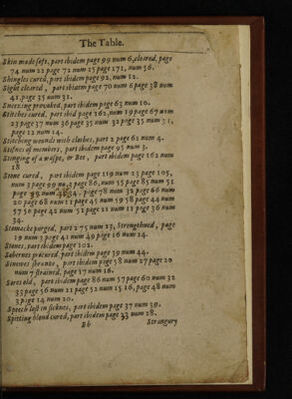 The Table.
Skin made soft, part ibidem page 99 num 6, cleared, page
74 num 22 page 71 num 25 page 171, num 56.
Shingles cured, part ibidem page 92, num 12.
Sight cleared, part ibidem page 70 num 6 page 38 num
41. page 35 num 31.
Sneezing provoked, part ibidem page 63 num 10.
Stitches cured, part ibid page 162, num 19 page 67 num
23 page 37 num 36 page 35 num 32 page 35 num 31,
page 12 num 14.
Stitching wounds with clothes, part 2 page 61 num 4.
Stifnes of members, part ibidem page 95 num 3.
Stinging of a waspe, or Bee, part ibidem page 162 num
18
Stone cured, part ibidem page 119 num 23 page 105,
num 3 page 99 page 86, num 55 page 85 num 51
page 99 num page 78 num 32 page 66 num
20 page 68 num 21 page 45 num 59 58 page 44 num
57 50 page 42 num 51 page 21 num 11 page 36 num
34.
Stomacke purged, part 2 75 num 23, Strengthned, page
19 num 3 page 41 num 49 page 16 num 14.
Stones, part ibidem page 102.
Sobernes procured, part ibidem page 39 num 44.
Sinewes shrunke, part ibidem page 58 num 27 page 20
num 7 strained, page 17 num 16.
Sores old, part ibidem page 86 num 57 page 60 num 32
33 page 56 num 21 page 52 num 15 16, page 48 num
3 page 14 num 20.
Speech lost in sicknes, part ibidem page 37 num 39.
Spitting bloud cured, part ibidem page 33 num 28.
Bb Strangury